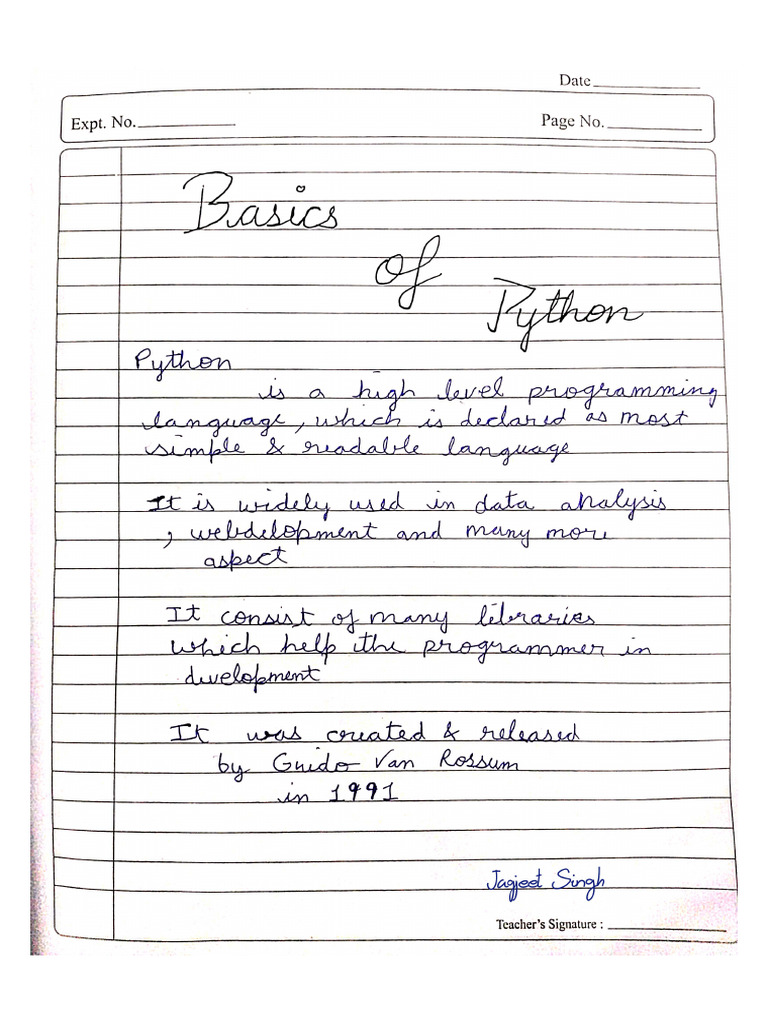 Date
Expt. No.
Page No.
Basics
of
Python
Python
is a high level programming
language, which is declared as most
simple & readable language
It is widely used in data analysis
, webdelopment and many more
aspect
It consist of many libraries
which help the programmer in
development
It was created & released
by Guido Van Rossum
in 1991
Jagjeet Singh
Teacher's Signature :